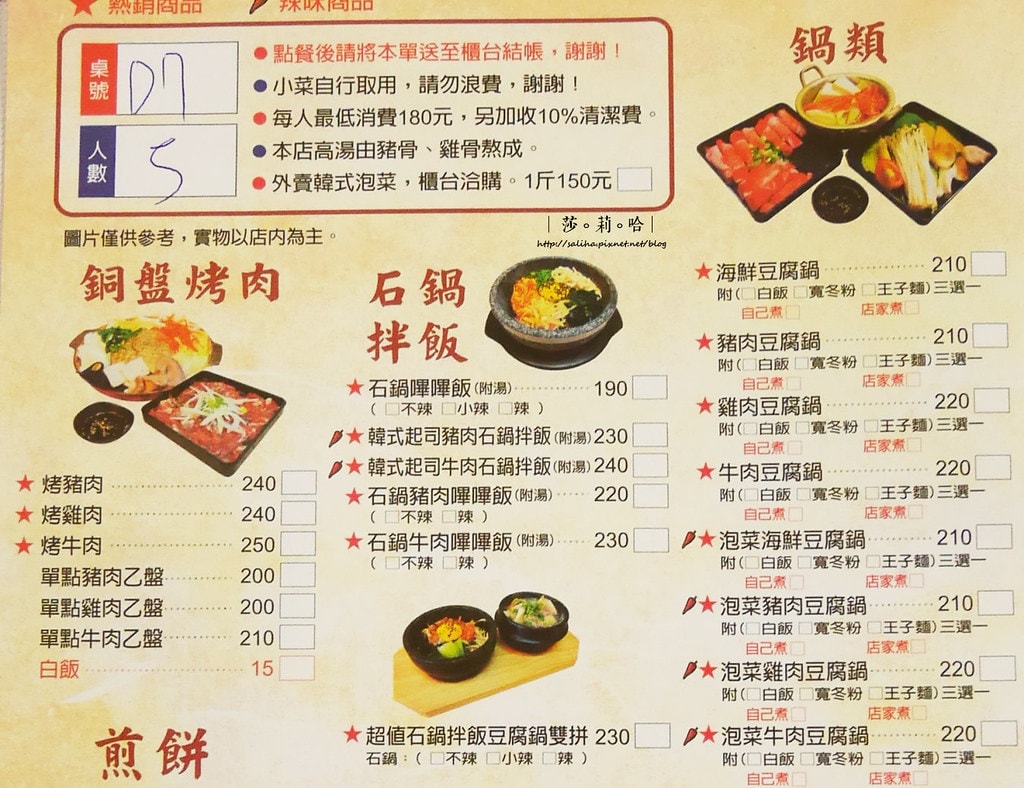 ★ 熱銷商品 辣味商品
桌號 D7
人數 5
●點餐後請將本單送至櫃台結帳，謝謝！
●小菜自行取用，請勿浪費，謝謝！
●每人最低消費180元，另加收10%清潔費。
●本店高湯由豬骨、雞骨熬成。
●外賣韓式泡菜，櫃台洽購。1斤150元□
圖片僅供參考，實物以店內為主。
|莎。莉。哈|
http://saliha.pixnet.net/blog
銅盤烤肉
★烤豬肉 240□
★烤雞肉 240□
★烤牛肉 250□
單點豬肉乙盤 200□
單點雞肉乙盤 200□
單點牛肉乙盤 210□
白飯 15□
煎餅
石鍋
拌飯
★石鍋嗶嗶飯(附湯) 190□
(□不辣 □小辣 □辣)
★韓式起司豬肉石鍋拌飯(附湯)230□
★韓式起司牛肉石鍋拌飯(附湯)240□
★石鍋豬肉嗶嗶飯(附湯) 220□
(□不辣 □辣)
★石鍋牛肉嗶嗶飯(附湯) 230□
(□不辣 □辣)
★超值石鍋拌飯豆腐鍋雙拼 230□
石鍋：(□不辣 □小辣 □辣)
鍋類
★海鮮豆腐鍋 210□
附(□白飯 □寬冬粉 □王子麵)三選一
自己煮□ 店家煮□
★豬肉豆腐鍋 210□
附(□白飯 □寬冬粉 □王子麵)三選一
自己煮□ 店家煮□
★雞肉豆腐鍋 220□
附(□白飯 □寬冬粉 □王子麵)三選一
自己煮□ 店家煮□
★牛肉豆腐鍋 220□
附(□白飯 □寬冬粉 □王子麵)三選一
自己煮□ 店家煮□
★泡菜海鮮豆腐鍋 210□
附(□白飯 □寬冬粉 □王子麵)三選一
自己煮□ 店家煮□
★泡菜豬肉豆腐鍋 210□
附(□白飯 □寬冬粉 □王子麵)三選一
自己煮□ 店家煮□
★泡菜雞肉豆腐鍋 220□
附(□白飯 □寬冬粉 □王子麵)三選一
自己煮□ 店家煮□
★泡菜牛肉豆腐鍋 220□
附(□白飯 □寬冬粉 □王子麵)三選一
自己煮□ 店家煮□